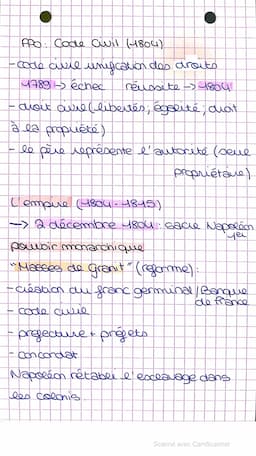 PPO: Code Civil (1804)
-code civil unification des droits
1789 -> échec réussite -> 1804
-droit civil (libertés, égalité, droit
à la propriété)
- le père représente l'autorité (seul
propriétaire)
L'empire (1804-1815)
-> 2 décembre 1804: sacre Napoléon
1er
pouvoir monarchique
"Masses de Granit" (réforme):
-création du franc germinal/Banque
de france
- code civil
- préfecture + préfets
- concordat
Napoléon rétablie l'esclavage dans
les colonis.
Scanné avec CamScanner